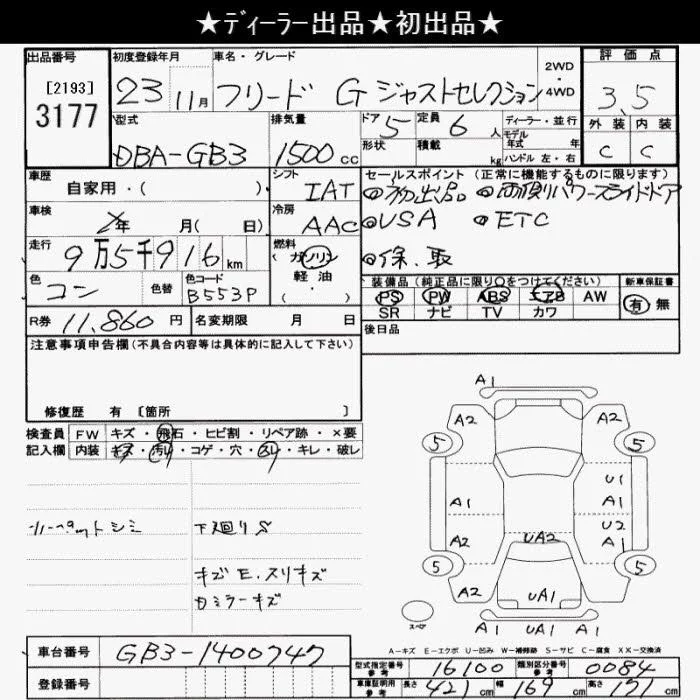 ★ディーラー出品★初出品★
出品番号
[2193]
3177
初度登録年月
23 11月
車名・グレード
フリード G ジャストセレクション
2WD
・
4WD
評価点
3.5
外装 内装
C C
型式
DBA-GB3
排気量
1500 cc
ドア 5
定員 6 人
形状
積載 kg
ディーラー・並行
モデル
年式 年
ハンドル 左・右
車歴
自家用・( )
シフト
IAT
セールスポイント(正常に機能するものに限ります)
◎初出品 ◎両側パワースライドドア
◎USA ◎ETC
◎保、取
車検
年 月( 日)
冷房
AAC
走行
9万5千916km
燃料
(ガソリン
軽・油
・ )
色
コン
色替
色コード
B553P
装備品(純正品に限り○をつけてください)
PS PW ABS エアB AW
SR ナビ TV カワ
新車保証書
有 無
R券 11,860円
名変期限 月 日
後日品
注意事項申告欄(不具合内容等は具体的に記入して下さい)
修復歴 有 [箇所 ]
検査員
記入欄
FW キズ・飛石・ヒビ割・リペア跡・×要
内装 キズ・汚レ・コゲ・穴・スレ・キレ・破レ
シミ
下廻りS
キズE.スリキズ
カミラーキズ
A1
A2 A2
5 5
U1
A1 A1
U2
A2 UA2 A1
5 5
A2 UA1 A2
A1 UA1 A1
スペア
A-キズ E-エクボ U-凹み W-補修跡 S-サビ C-腐食 XX-交換済
車台番号
GB3-1400747
登録番号
型式指定番号
参考
16100
類別区分番号
参考
0084
車庫証明用
参考
長さ 421cm
幅 169cm
高さ 171cm